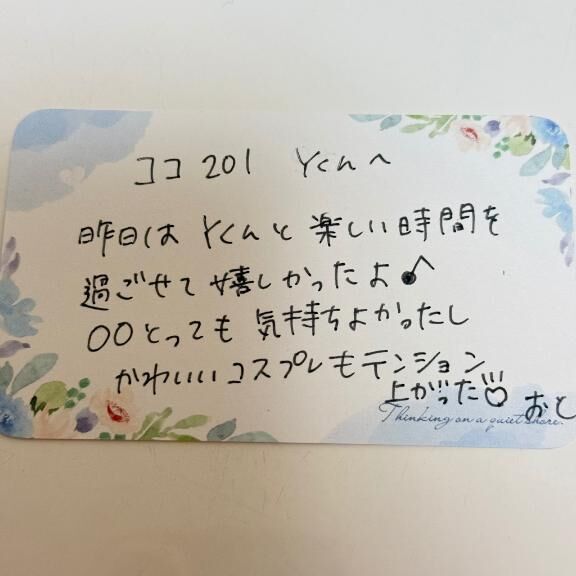 ココ 201 Yくんへ
昨日は Yくんと 楽しい時間を
過ごせて 嬉しかったよ♪
〇〇とっても 気持ちよかったし
かわいいコスプレもテンション
上がった♡ おと
Thinking on a quiet shore.